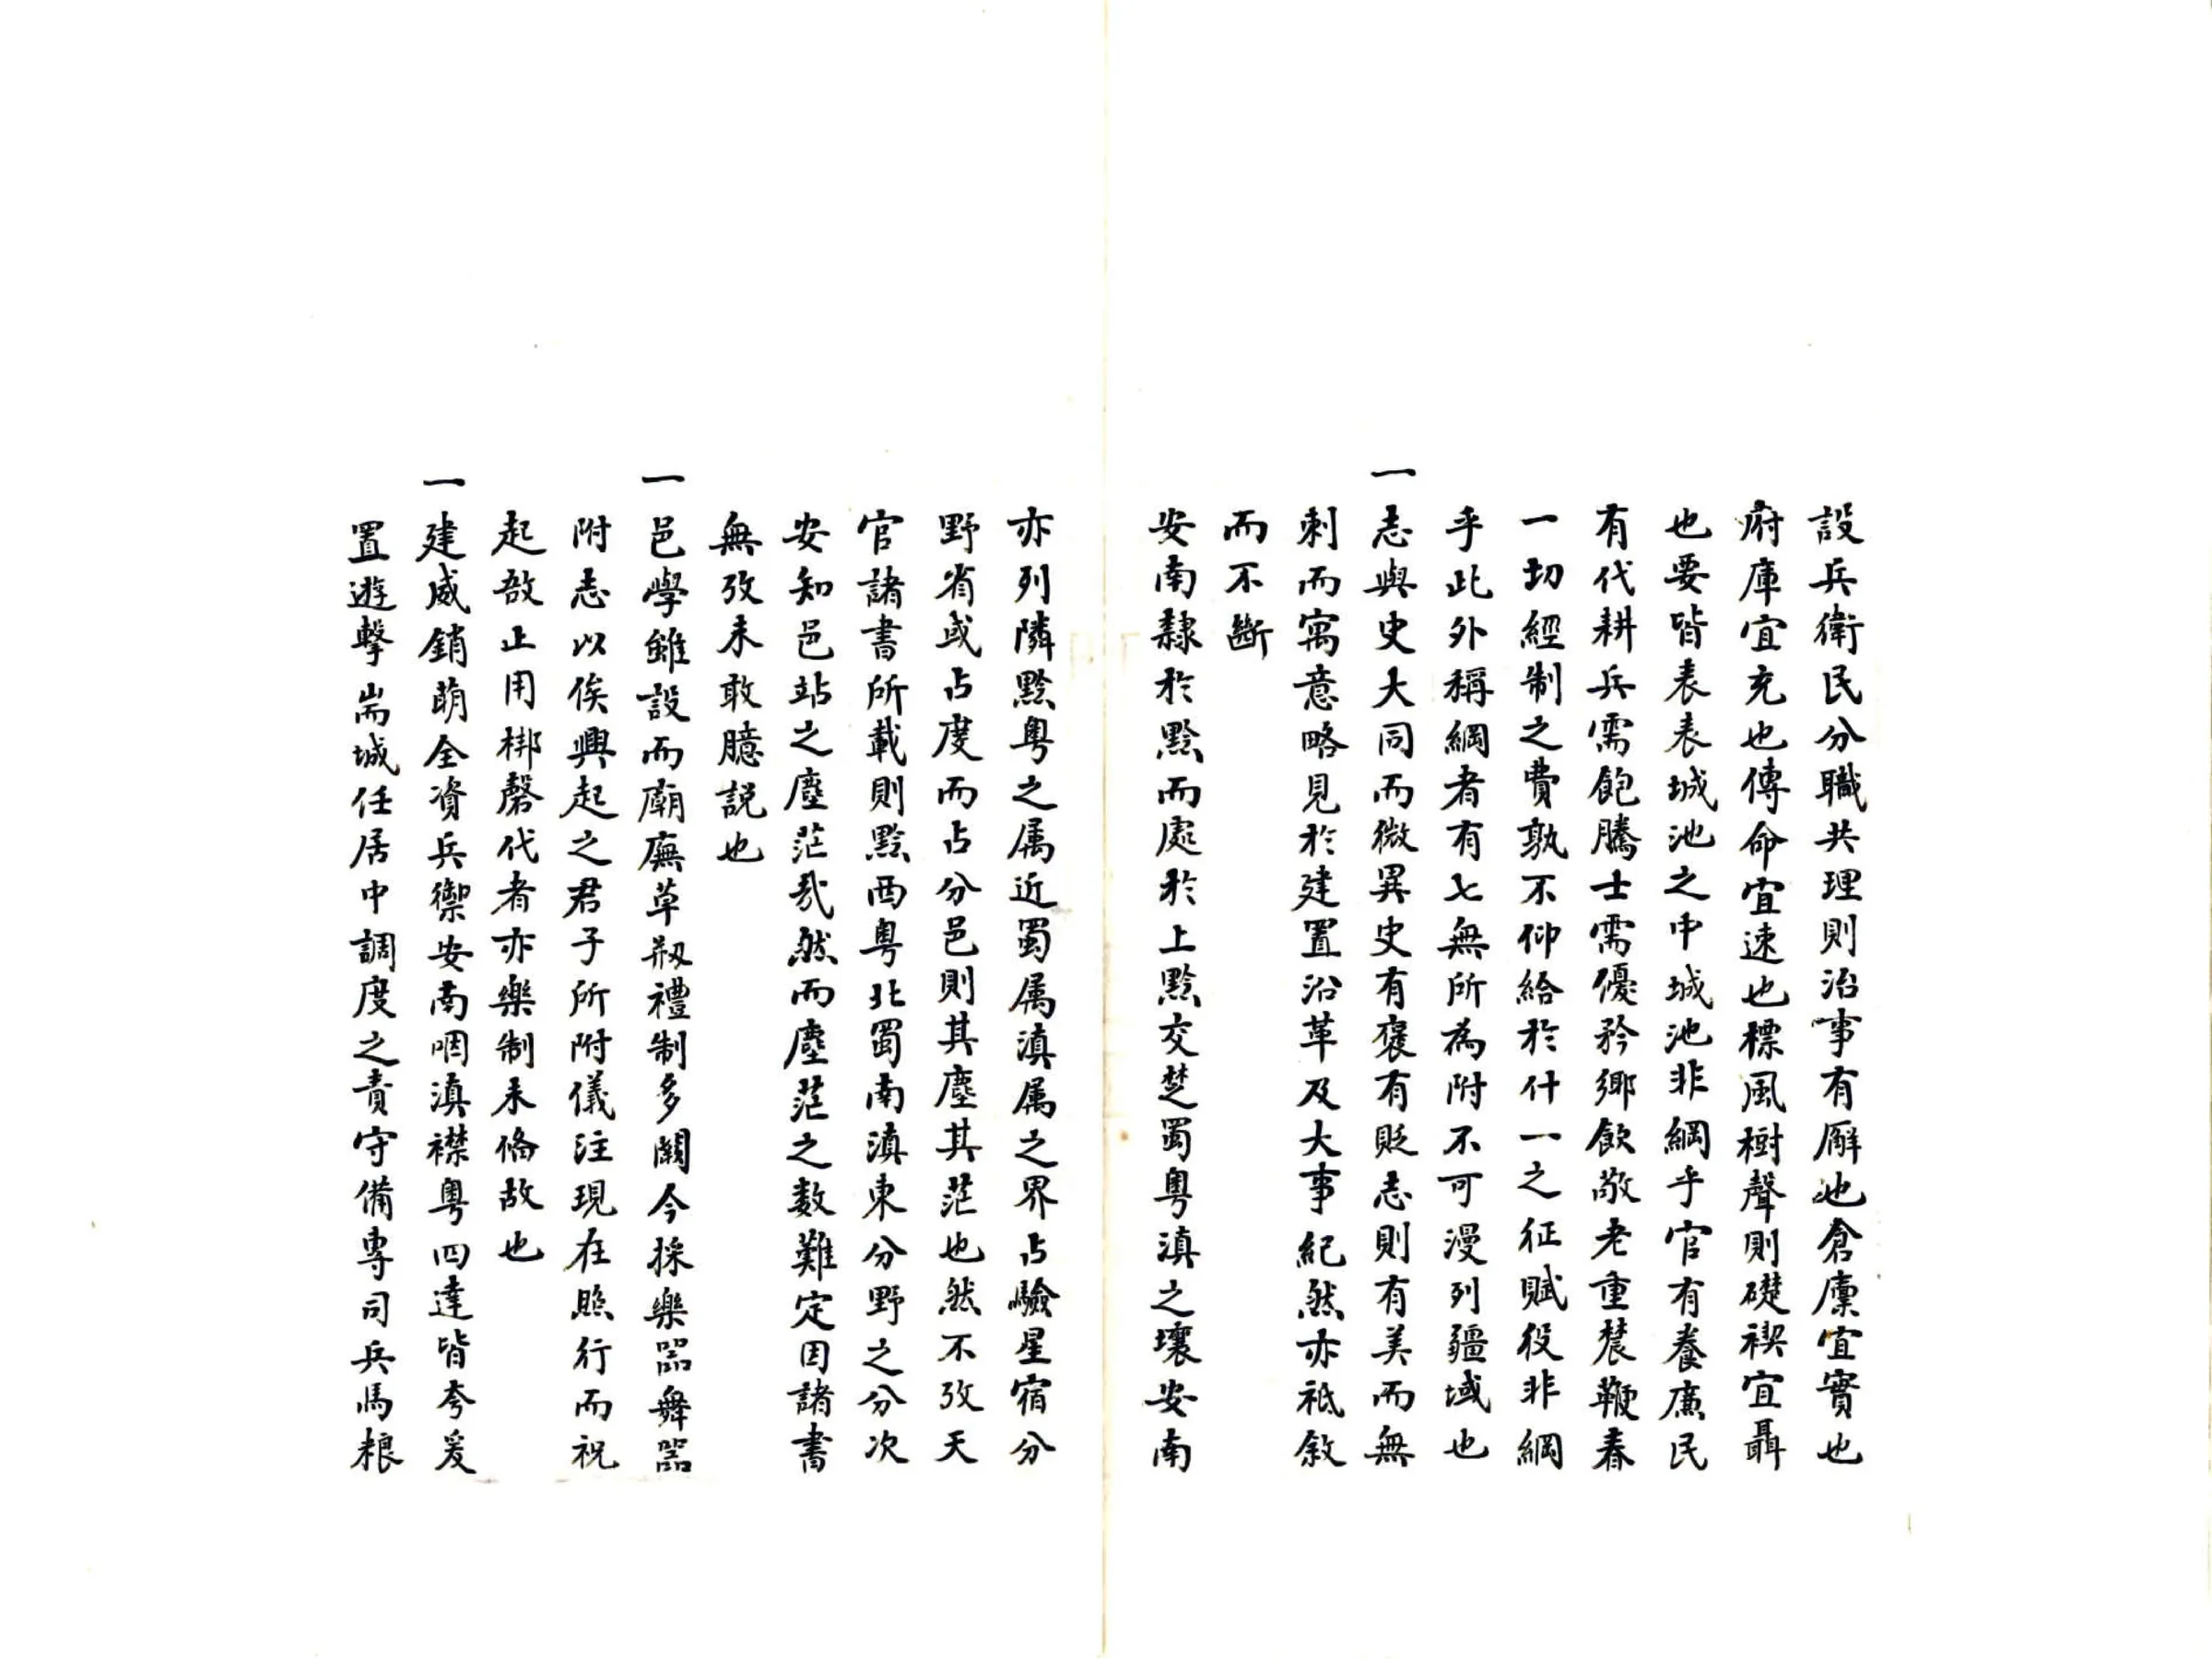 設兵衛民分職共理則治事有廨也倉廩宜實也
府庫宜充也傳命宜速也標風樹聲則礎禊宜聶
也要皆表表城池之中城池非綱乎官有養廉民
有代耕兵需飽騰士需優矜鄉飲敬老重農鞭春
一切經制之費孰不仰給於什一之征賦役非綱
乎此外稱綱者有七無所為附不可漫列疆域也
一志與史大同而微異史有褒有貶志則有美而無
刺而寓意略見於建置沿革及大事紀然亦祗敘
而不斷
安南隸於黔而處於上黔交楚蜀粵滇之壤安南
亦列隣黔粵之属近蜀属滇属之界占驗星宿分
野省或占度而占分邑則其塵其茫也然不攷天
官諸書所載則黔西粵北蜀南滇東分野之分次
安知邑站之塵茫㦲然而塵茫之数難定因諸書
無攷未敢臆説也
一邑學雖設而廟廡草剏禮制多闕今採樂器舞器
附志以俟興起之君子所附儀注現在照行而祝
起敔止用梆磬代者亦樂制未俻故也
一建威銷萌全資兵禦安南咽滇襟粵四達皆夸爰
置遊擊耑城任居中調度之責守備專司兵馬粮